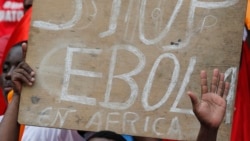 STOP
EBOLA
EN AFRICA